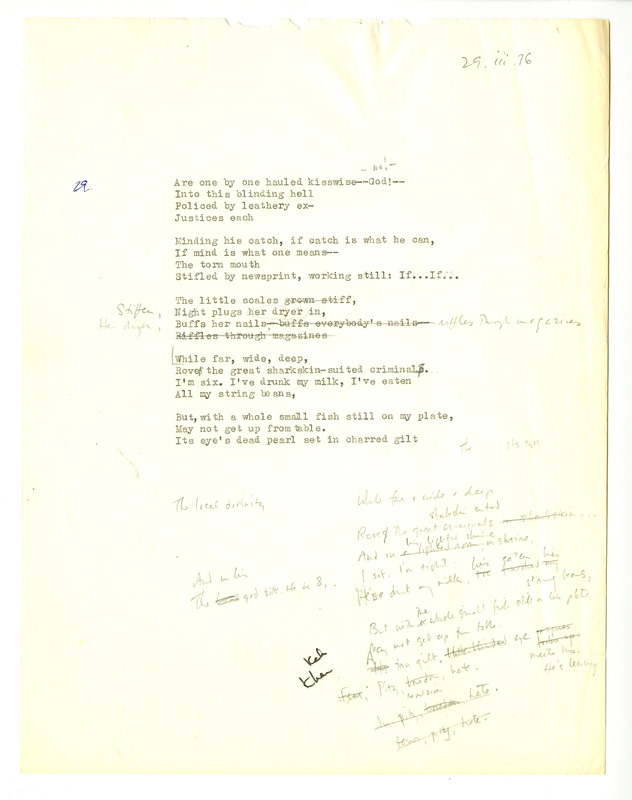 29. iii .76
29.
- no! -
Are one by one hauled kisswise--God!--
Into this blinding hell
Policed by leathery ex-
Justices each
Minding his catch, if catch is what he can,
If mind is what one means--
The torn mouth
Stifled by newsprint, working still: If...If...
The little scales grown stiff,
Stiffen,
Night plugs her dryer in,
Her dryer,
Buffs her nails,--buffs everybody's nails-- riffles through magazines
Riffles through magazines
While far, wide, deep,
Roves the great sharkskin-suited criminals.
I'm six. I've drunk my milk, I've eaten
All my string beans,
But, with a whole small fish still on my plate,
May not get up from table.
Its eye's dead pearl set in charred gilt
The
The local divinity
While far & wide & deep
sharkskin suited
Rove the great criminals
And in shrine,
I sit. I'm eight. his eaten his
drunk my milk,
string beans,
And in his
The god sits. He is 8,
But with the whole small fish still on his plate
May not get up from table.
gilt, eye
meets his.
Keh
Khen
Fear, Pity, hate.
In pity, hate.
pity, hate.